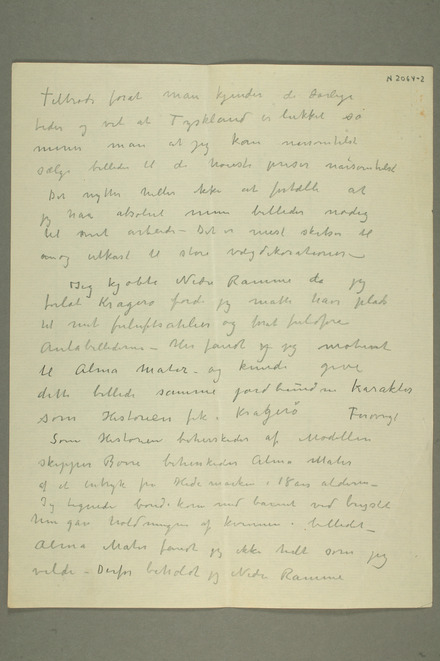 N 2064-2
tiltrods forat man kjender de daarlige
tider og vet at Tyskland er lukket så
mener man at jeg kan naarsomhelst
sælge billeder til de høieste priser naarsomhelst
Det nytter heller ikke at fortælle at
jeg har absolut mine billeder nødig
til mit arbeide – Det er mest skitser til
og utkast til store vægdekorationer –
Jeg kjøbte Nedre Ramme da jeg
forlot Kragerø fordi jeg måtte have plads
til mit friluftsatelier og for at fuldføre
Aulabillederne – Her fandt jeg motivet
til Alma Mater – og kunde give
dette billede samme jordbundne Karakter
som Historien fik i Kragerø
Som Historien beherskedes af Modellen
skipper Børre beherskedes Alma Mater
af et indtryk fra Hedemarken i 18 års alderen –
Jeg tegnede bondekone med barnet ved brystet
Hun gav holdningen af kvinnen i billedet –
Alma Mater fandt jeg ikke helt som jeg
vilde – Derfor beholdt jeg Nedre Ramme